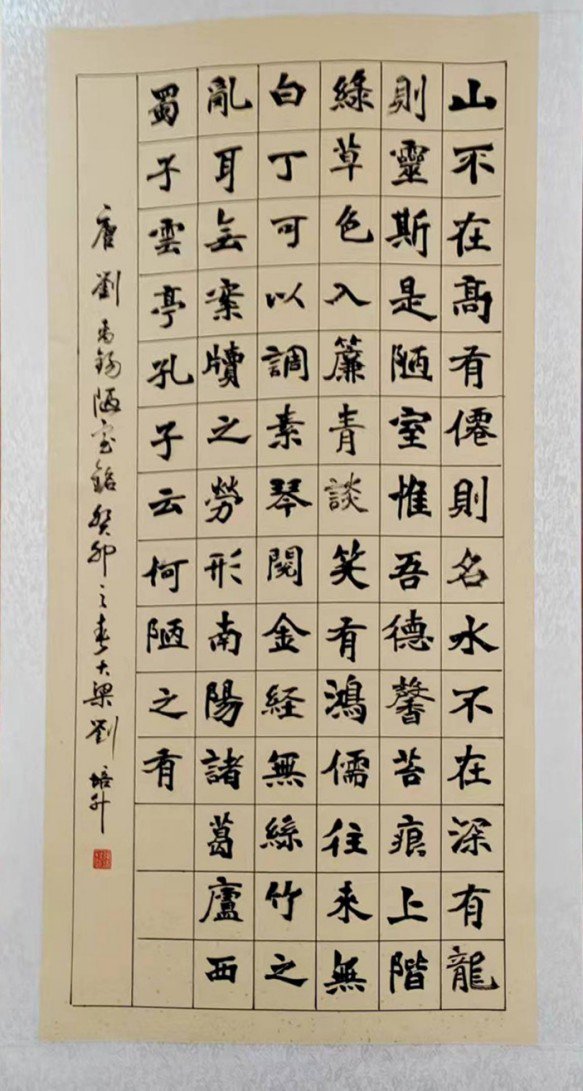 山不在高有僊則名水不在深有龍
則靈斯是陋室惟吾德馨苔痕上階
綠草色入簾青談笑有鴻儒往來無
白丁可以調素琴閱金経無絲竹之
亂耳無案牘之勞形南陽諸葛廬西
蜀子雲亭孔子云何陋之有
唐劉禹錫陋室銘癸卯之春大梁劉培升